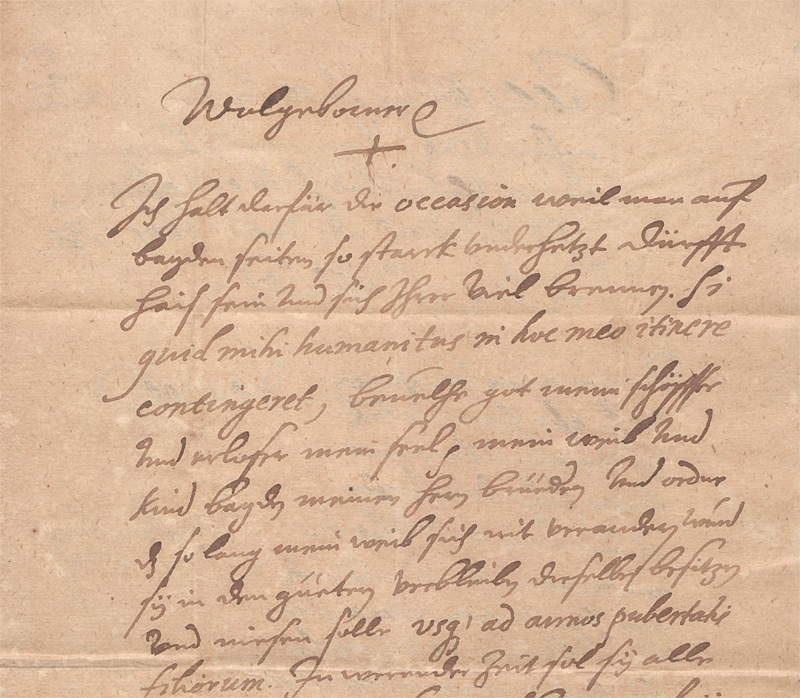 Wolgeborner
Ich halt darfür die occasion weil man auf
bayden seiten so starck underhetzt dürfft
haiß sein und sich Ihrer viel brennen. Si
quid mihi humanitus in hoc meo itinere
contingeret, bevelhe got meim schöpffer
und erloser mein seel, mein weib und
kind bayden meinen hern brüedern und ordne
dz so lang mein weib sich nit verandern wird
sy in den güetern verbleiben dieselben besitzen
und niesen solle usq' ad annos pubertatis
filiorum. In werender Zeit sol sy alle